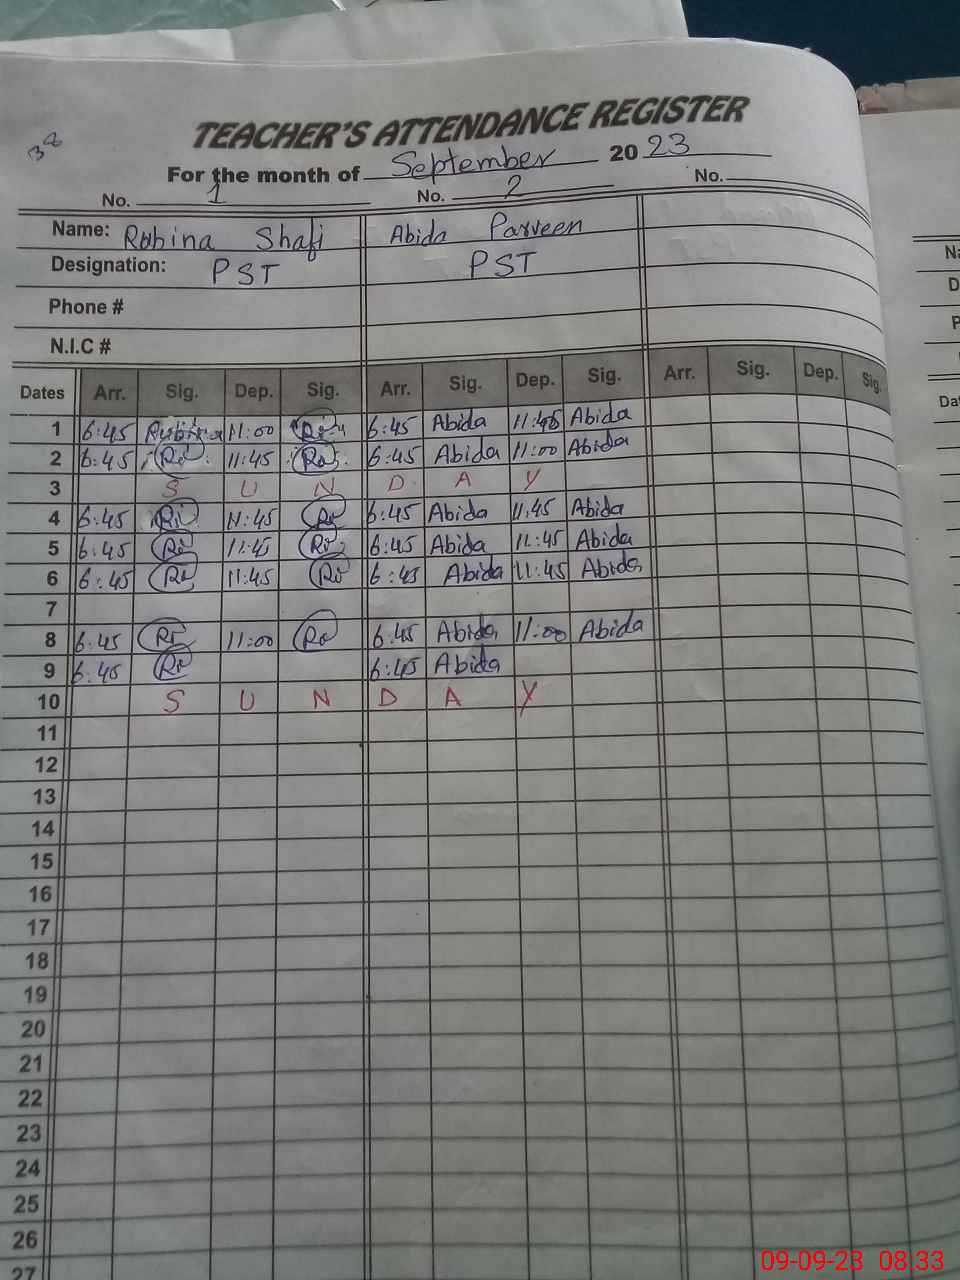 38
TEACHER'S ATTENDANCE REGISTER
For the month of September 2023
No. 1 No. 2 No.
Name: Rubina Shafi Abida Parveen
Designation: PST PST
Phone #
N.I.C #
Dates Arr. Sig. Dep. Sig. Arr. Sig. Dep. Sig. Arr. Sig. Dep. Sig.
1 6:45 Rubina 11:00 6:45 Abida Abida
2 6:45 11:45 6:45 Abida 11:00 Abida
3 S U N D A Y
4 6:45 11:45 6:45 Abida 11:45 Abida
5 6:45 11:45 6:45 Abida 11:45 Abida
6 6:45 11:45 6:45 Abida 11:45 Abida
7
8 6:45 11:00 6:45 Abida 11:00 Abida
9 6:45 6:45 Abida
10 S U N D A Y
11
12
13
14
15
16
17
18
19
20
21
22
23
24
25
26
27
09-09-23 08:33